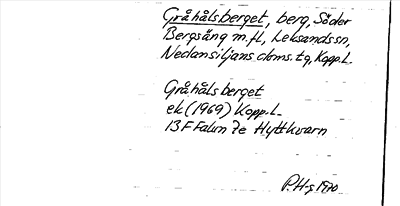 Gråhålsberget, berg, Söder
Bergsång m.fl., Leksands sn,
Nedansiljans doms. tg, Kopp. l.
Gråhålsberget
ek (1969) Kopp. l.
13 F Falun 7e Hyttkvarn
P.H-g 1970